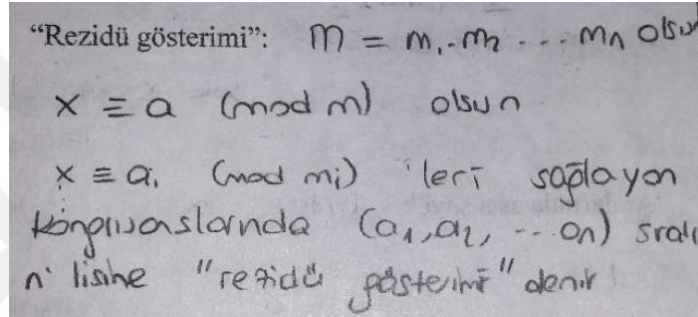 “Rezidü gösterimi”: m = m₁.m₂ ... mn olsun
x ≡ a (mod m) olsun
x ≡ aᵢ (mod mᵢ) 'leri sağlayan
kongrüanslarında (a₁,a₂, ... an) sıralı
n' lisine "rezidü gösterimi" denir